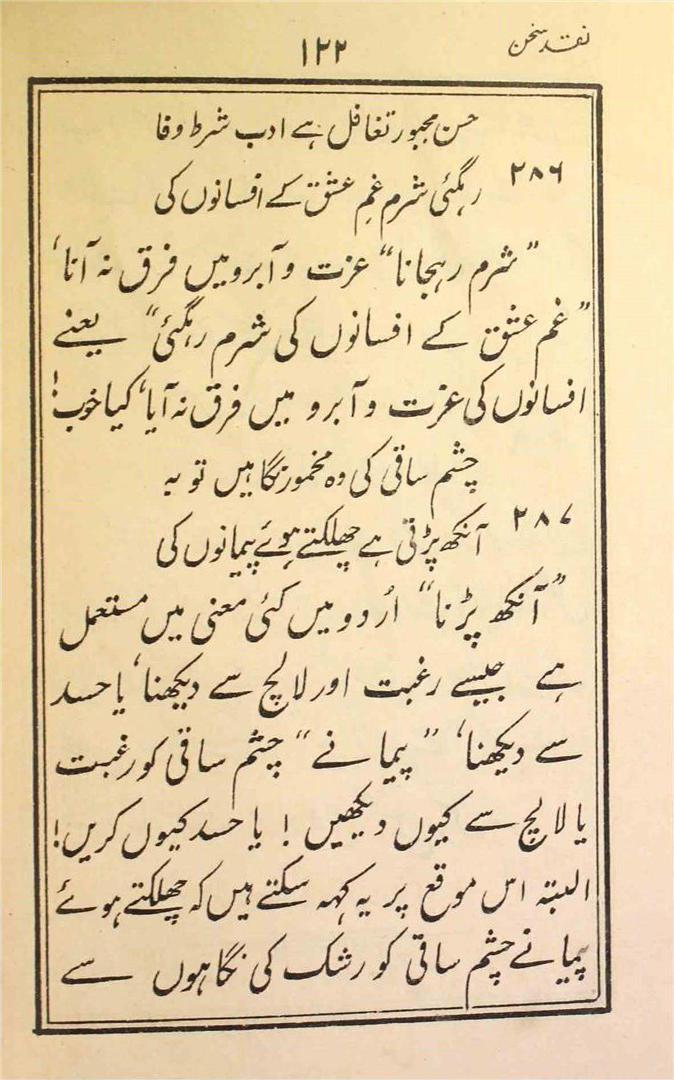 نقد سخن
۱۲۲
حسن مجبور تغافل ہے ادب شرط وفا
۲۸۶
رہگئی شرم غمِ عشق کے افسانوں کی
”شرم رہجانا“ عزت و آبرو میں فرق نہ آنا،
”غم عشق کے افسانوں کی شرم رہگئی“ یعنے
افسانوں کی عزت و آبرو میں فرق نہ آیا، کیا خوب!
چشم ساقی کی وہ مخمور نگاہیں توبہ
۲۸۷
آنکھ پڑتی ہے چھلکتے ہوئے پیمانوں کی
”آنکھ پڑنا“ اُردو میں کئی معنی میں مستعمل
ہے جیسے رغبت اور لالچ سے دیکھنا، یا حسد
سے دیکھنا، ”پیمانے“ چشم ساقی کو رغبت
یا لالچ سے کیوں دیکھیں! یا حسد کیوں کریں!
البتہ اس موقع پر یہ کہہ سکتے ہیں کہ چھلکتے ہوئے
پیمانے چشم ساقی کو رشک کی نگاہوں سے